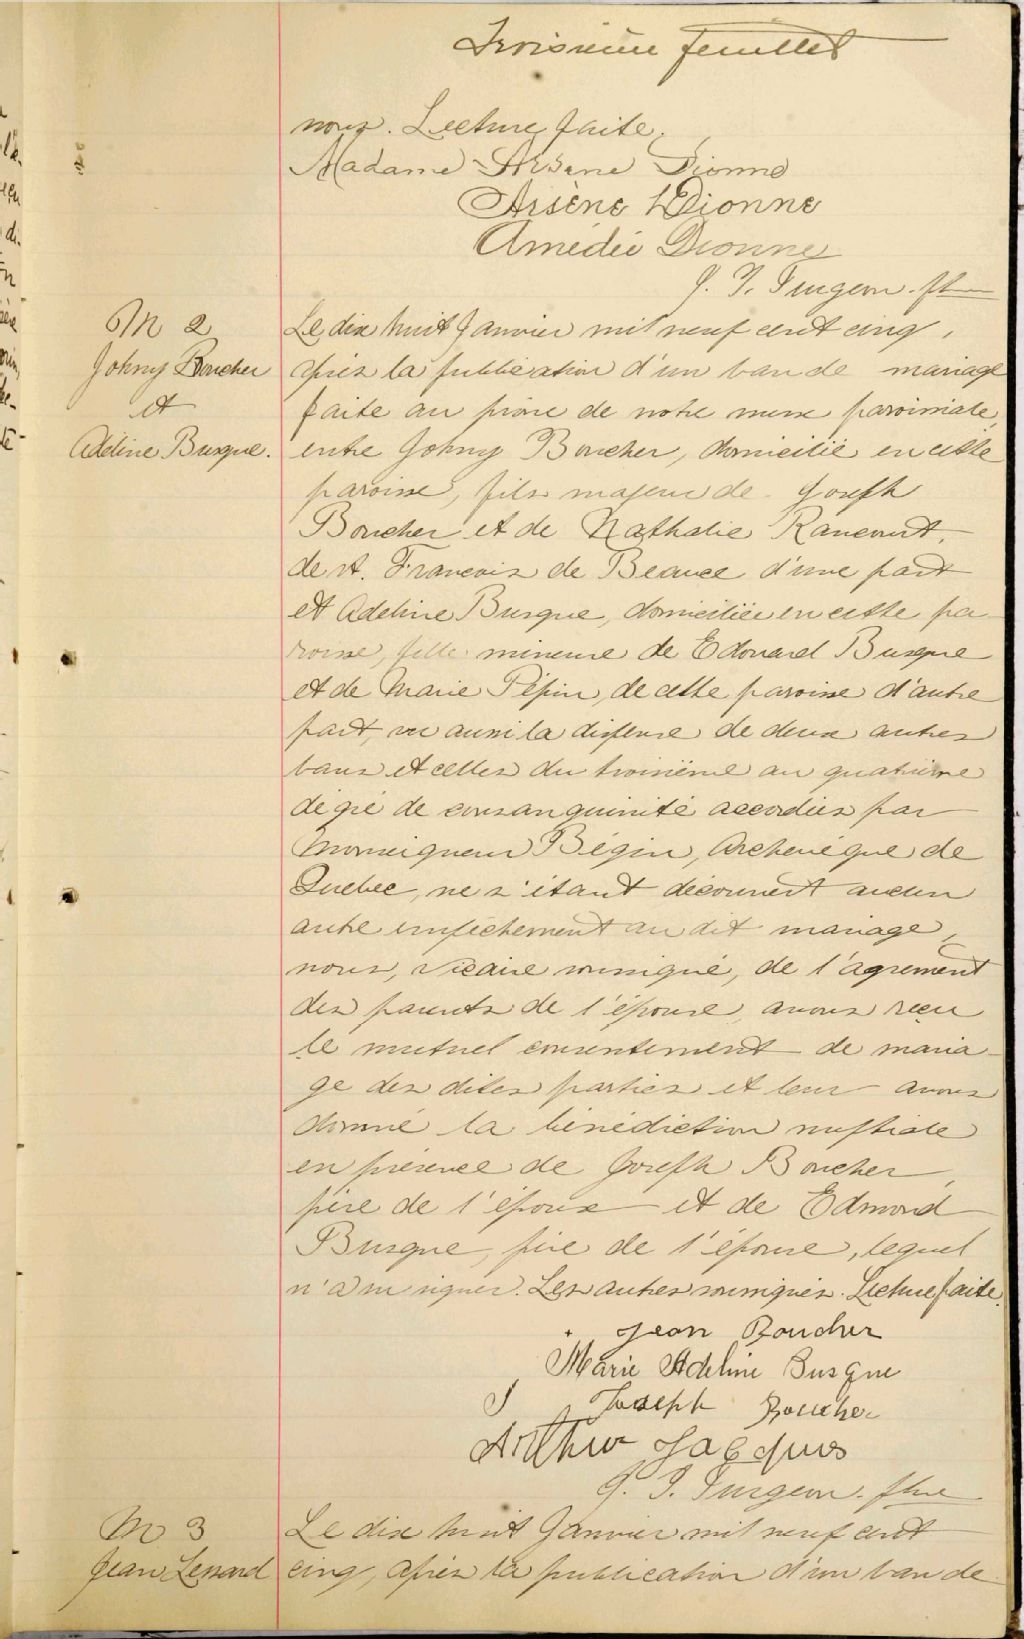 Troisième feuillet
nous. Lecture faite.
Madame Arsène Dionne
Arsène Dionne
Amédée Dionne
J. T. Turgeon. ptre
M 2
Johny Boucher
et
Adéline Busque.
Le dix huit Janvier mil neuf cent cinq,
après la publication d'un ban de mariage
faite au prône de notre messe paroissiale,
entre Johny Boucher, domicilié en cette
paroisse, fils majeur de Joseph
Boucher et de Nathalie Rancourt,
de St. François de Beauce d'une part
et Adeline Busque, domiciliée en cette pa
roisse, fille mineure de Edouard Busque
et de Marie Pépin, de cette paroisse d'autre
part, vu aussi la dispense de deux autres
bans et celles du troisième au quatrième
dégré de consanguinité accordées par
Monseigneur Bégin, Archevêque de
Québec, ne s'étant découvert aucun
autre empêchement au dit mariage,
nous, Vicaire soussigné, de l'agrement
des parents de l'épouse, avons reçu
le mutuel consentement de maria-
ge des dites parties et leur avons
donné la bénédiction nuptiale
en présence de Joseph Boucher,
père de l'époux et de Edmond
Busque, père de l'épouse, lequel
n'a su signer. Les autres soussignés. Lecture faite.
Jean Boucher
Marie Adeline Busque
J Joseph Boucher
Arthur Jacques
J. T. Turgeon. ptre
M 3
Jean Lessard
Le dix huit Janvier mil neuf cent
cinq, après la publication d'un ban de